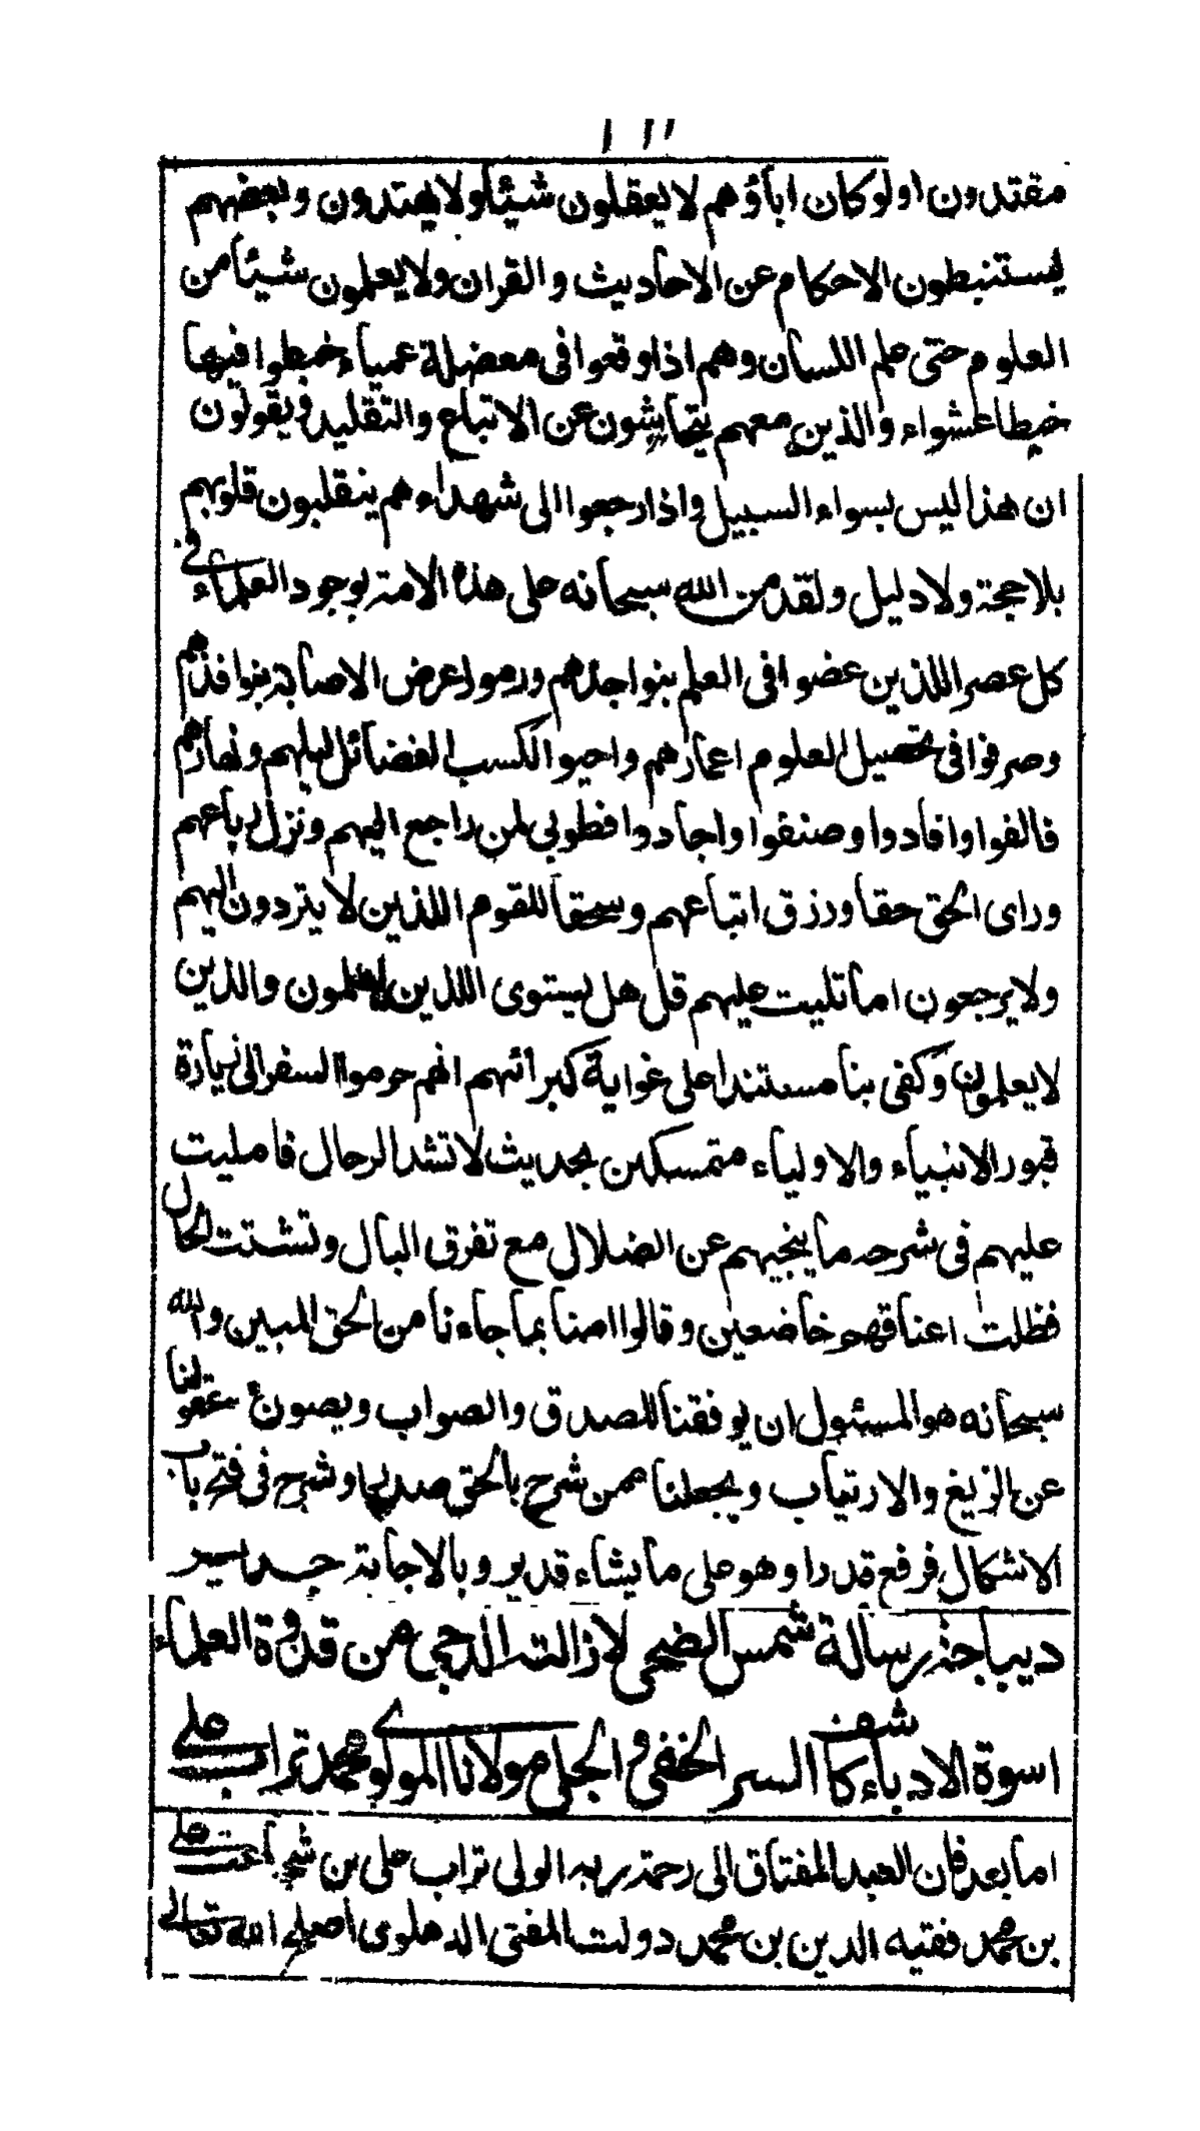 مقتدون اولوكان اباؤهم لا يعقلون شيئا ولا يهتدون وبعضهم
يستنبطون الاحكام عن الاحاديث والقران ولا يعلمون شيئا من
العلوم حتى علم اللسان وهم اذا وقعوا فى معضلة عمياء خبطوا فيها
خبطا عشواء والذين معهم يتحاشون عن الاتباع والتقليد ويقولون
ان هذا ليس بسواء السبيل واذا رجعوا الى شهداءهم ينقلبون قلوبهم
بلا حجة ولا دليل ولقد من الله سبحانه على هذه الامة بوجود العلماء فى
كل عصر اللذين عضوا فى العلم بنواجذهم ورموا عرض الاصابة بنوافذهم
وصرفوا فى تحصيل العلوم اعمارهم واحيوا لكسب الفضائل ليلهم ونهارهم
فالفوا وافادوا وصنفوا واجادوا فطوبى لمن راجع اليهم ونزل برباعهم
وراى الحق حقا ورزق اتباعهم وسحقا للقوم اللذين لا يتردون اليهم
ولا يرجعون اما تليت عليهم قل هل يستوى اللذين يعلمون والذين
لا يعلمون وكفى بنا مستندا على غواية كبرائهم انهم حرموا السفر الى زيارة
قبور الانبياء والاولياء متمسكين بحديث لا تشد الرحال فامليت
عليهم فى شرحه ما ينجيهم عن الضلال مع تفرق البال وتشتت الحال
فظلت اعناقهم خاضعين وقالوا امنا بما جاءنا من الحق المبين والله
سبحانه هو المسئول ان يوفقنا للصدق والصواب ويصون عقولنا
عن الزيغ والارتياب ويجعلنا ممن شرح بالحق صدرا وشرح فى فتح باب
الاشكال فرفع قدرا وهو على ما يشاء قدير وبالاجابة جدير
ديباجة رسالة شمس الضحى لازالة الدجى من قدوة العلماء
اسوة الادباء كاشف السر الخفى والجلى مولانا المولوى محمد تراب على
اما بعد فان العبد المفتاق الى رحمة ربه الولى تراب على بن شجاعت على
بن محمد فقيه الدين بن محمد دولت المفتى الدهلوى اصلح الله تعالى